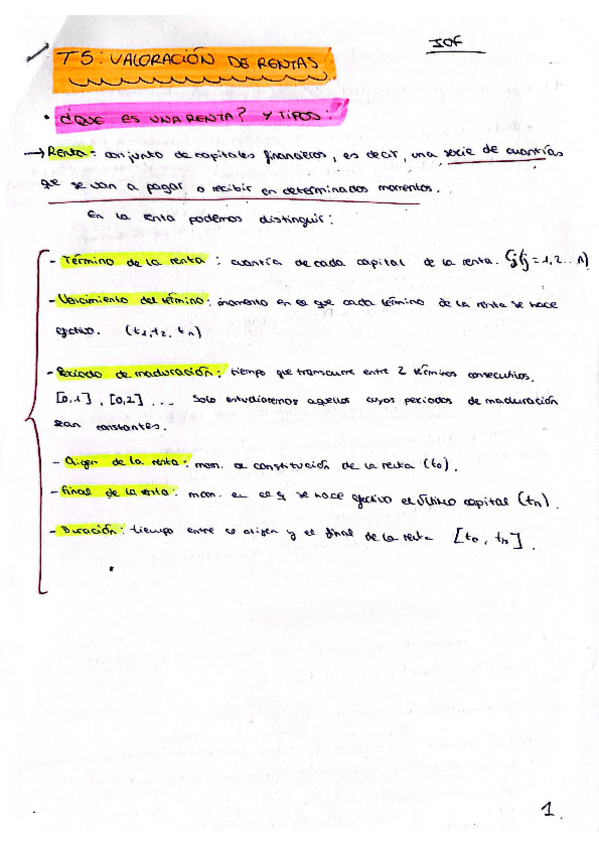 IOF
T5: VALORACIÓN DE RENTAS
• ¿QUE ES UNA RENTA? Y TIPOS:
→ Renta: conjunto de capitales financieros, es decir, una serie de cuantías
que se van a pagar o recibir en determinados momentos.
En la renta podemos distinguir:
- Término de la renta: cuantía de cada capital de la renta. Cj (j=1,2...n)
- Vencimiento del término: momento en el que cada término de la renta se hace
efectivo. (t1, t2, tn)
- Periodo de maduración: tiempo que transcurre entre 2 términos consecutivos.
[0,1], [0,2]... Solo estudiaremos aquellos cuyos periodos de maduración
sean constantes.
- Origen de la renta: mom. de constitución de la renta (t0).
- Final de la renta: mom. en el q se hace efectivo el último capital (tn).
- Duración: tiempo entre el origen y el final de la renta [t0, tn].
1.